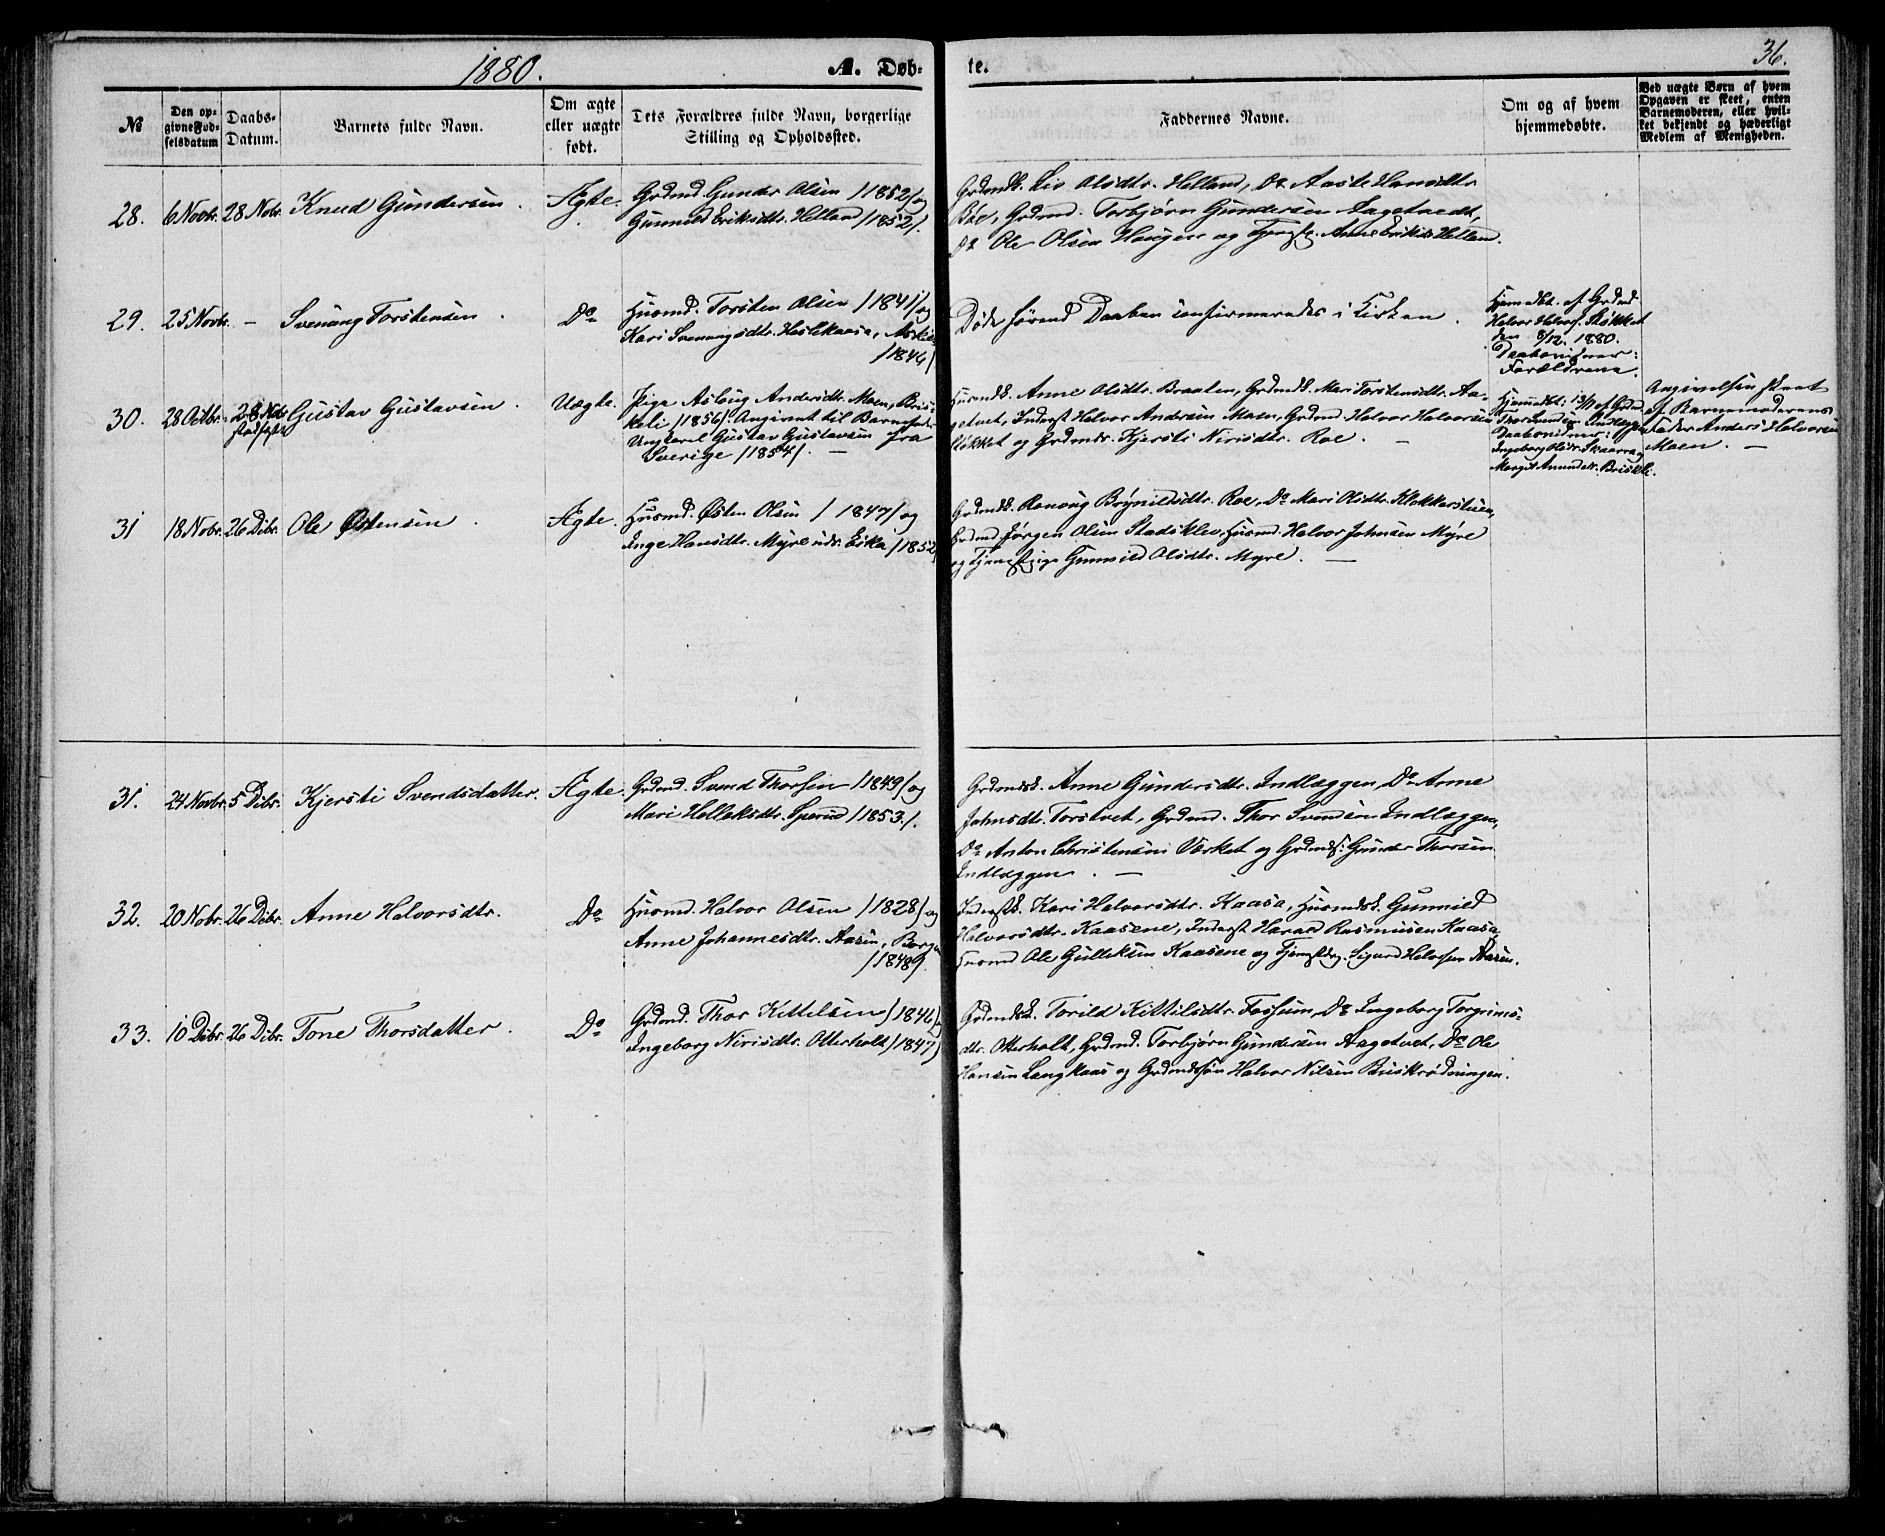 1880.
A. Døb-
te.
36.
№
Den op-
givne Fød-
selsdatum
Daabs-
Datum.
Barnets fulde Navn.
Om ægte
eller uægte
født.
Dets Forældres fulde Navn, borgerlige
Stilling og Opholdssted.
Faddernes Navne.
Om og af hvem
hjemmedøbte.
Ved uægte Børn af hvem
Opgaven er skeet, enten
Barnemoderen, eller hvil-
ket bekjendt og hæderligt
Medlem af Menigheden.
28. 6 Novbr. 28 Nobr. Knud Gundersen. Ægte.
Grdmd. Gunder Olsen /1852/ og
Gunnild Eriksdtr. Helland /1852/.
Grdmdk. Liv Olsdtr. Helland, Do Aaste Hansdtr.
Bøe, Grdmd. Torbjørn Gundersen Aagetvedt,
Do Ole Olsen Haugen og Anne Eriksd. Helland.
29. 25 Novbr. – Svenung Torstensen. Do
Husmd. Torsten Olsen /1841/ og
Kari Svenungsdtr. Haslekaasa,
/1846/
Døde førend Daaben confirmeredes i Kirken.
Hjemmedbt. af Grdmd.
Halvor Halvors. Stokket
den 8/12. 1880.
Daabsvidner:
Forældrene.
30. 28 Octbr. 28 Nobr. Gustav Gustavsen. Uægte.
stadfæstet
Pige Aslaug Andersdtr. Moen, Bris-
keli /1856/. Angivet til Barnefader
Ungkarl Gustav Gustavsen fra
Sverige /1854/. –
Husmdk. Anne Olsdtr. Braaten, Grdmdk. Mari Torstensdtr. Aa-
getvet, Inderst Halvor Andersen Moen, Grdmd. Halvor Halvorsen
Stokket og Grdmdk. Kjersti Nirisdtr. Roe. –
Hjemmedbt. 13/11 af Grdmd.
Thor Svendsen Indlæggen
Daabsvidner:
Ingeborg Olsdtr. Skaarra og
Margit Amundsdtr. Briskeli.
Angivelsen skeet
af Barnemoderens
Fader Anders Halvorsen
Moen. –
31 18 Nobr. 26 Dbr. Ole Østensen. Ægte.
Husmd. Østen Olsen /1847/ og
Inge Hansdtr. Myre undr. Eika /1852/
Grdmdk. Ranoug Brynildsdtr. Roe, Do Mari Olsdtr. Klokkersteien,
Grdmd Jørgen Olsen Stadskleiv, Husmd. Halvor Johnsen Myre
og Tjenestpige Gunnild Olsdtr. Myre. –
31. 24 Novbr. 5 Dbr. Kjersti Svendsdatter. Ægte.
Grdmd. Svend Thorsen /1849/ og
Mari Helleksdtr. Sperud /1853./.
Grdmdk. Anne Gundersdtr. Indlæggen, Do Anne
Johnsdtr. Torstvet, Grdmd. Thor Svendsen Indlæggen,
Do Anton Christensen Værket og Grdmds. Gunder Thorsen
Indlæggen. –
32. 20 Nobr. 26 Dbr. Anne Halvorsdtr. Do
Husmd. Halvor Olsen /1828/ og
Anne Johannesdtr. Aasen,
/1848/.
Inderstk. Kari Halvorsdtr. Kaasa, Husmdk. Gunnild
Halvorsdtr. Kaasene, Inderst Harald Rasmusen Kaasa,
Husmd Ole Gulleksen Kaasene og Tjenestdrg. Sigurd Halvorsen Aasen.
33. 10 Dbr. 26 Dbr. Tone Thorsdatter. Do
Grdmd. Thor Kittelsen /1846/ og
Ingeborg Nirisdtr. Otterholt /1847/
Grdmdk. Torild Kittilsdtr. Fossum, Do Ingeborg Torgrims-
dtr. Otterholt, Grdmd. Torbjørn Gundersen Aagetvet, Do Ole
Hansen Langkaas og Grdmdssøn Halvor Nilsen Buskrødningen.